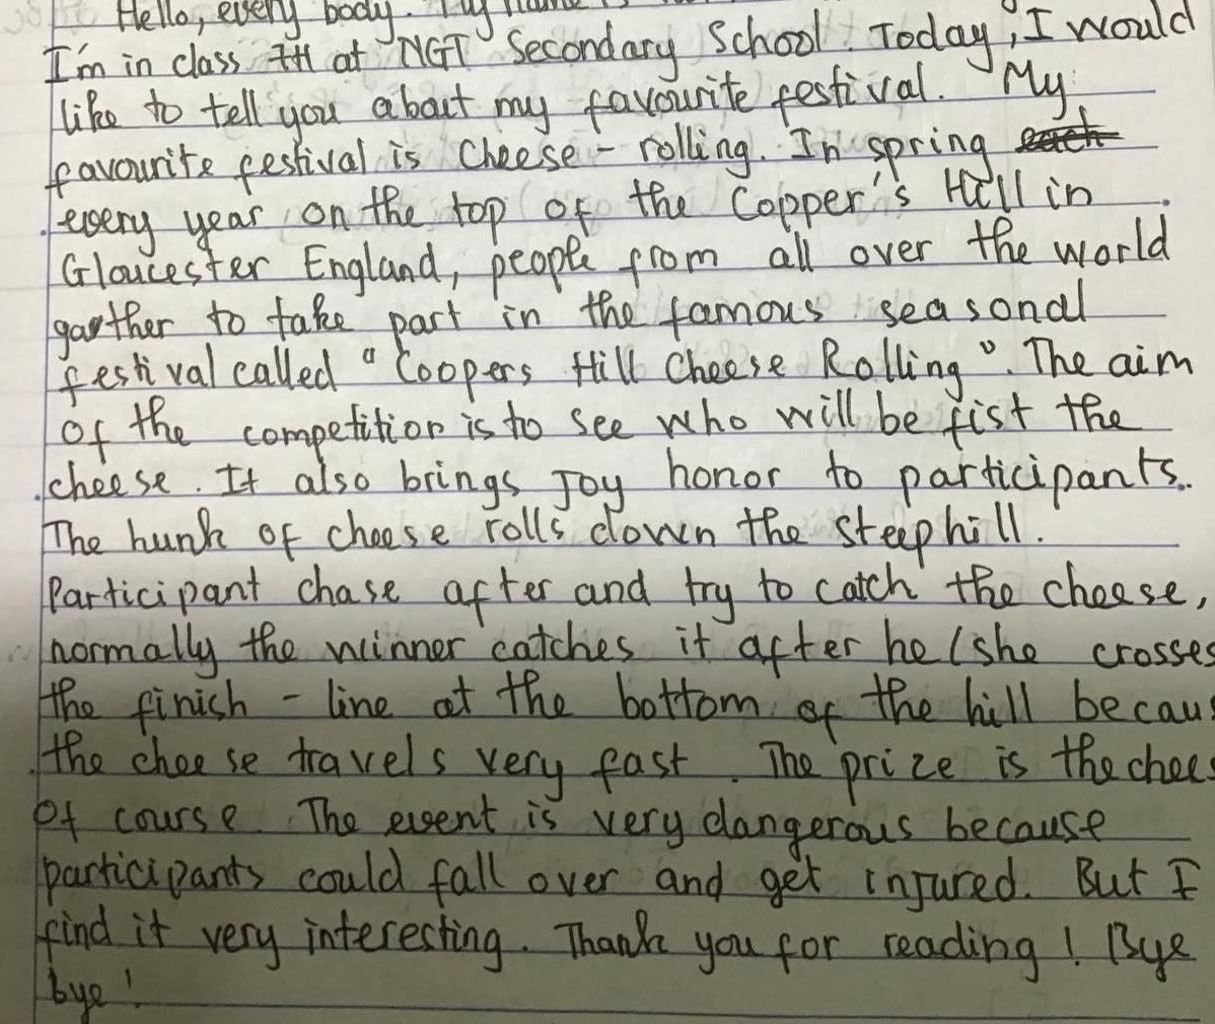 Hello, every body. My name is
I'm in class 7H at NGT Secondary School. Today, I would
like to tell you about my favourite festival. My
favourite festival is Cheese - rolling. In spring each
every year, on the top of the Copper's Hill in
Gloucester England, people from all over the world
gather to take part in the famous seasonal
festival called "Coopers Hill Cheese Rolling". The aim
of the competition is to see who will be fist the
cheese. It also brings Joy honor to participants.
The hunk of cheese rolls down the steep hill.
Participant chase after and try to catch the cheese,
normally the winner catches it after he/she crosses
the finish - line at the bottom of the hill becau
the cheese travels very fast. The prize is the chees
of course. The event is very dangerous because
participants could fall over and get injured. But I
find it very interesting. Thank you for reading! Bye
bye!